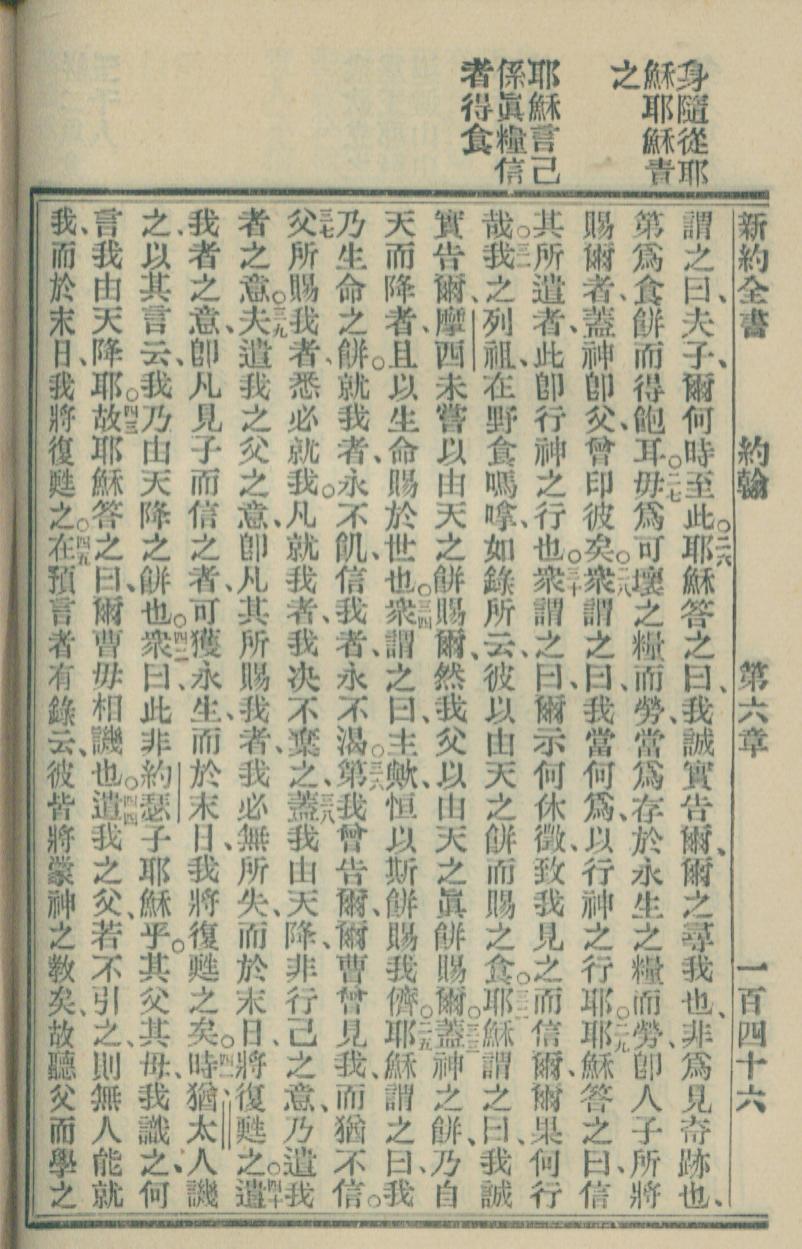 身隨從耶
穌耶穌責
之
耶穌言己
係眞糧信
者得食
新約全書 約翰 第六章 一百四十六
謂之曰、夫子、爾何時至此、○二六耶穌答之曰、我誠實告爾、爾之尋我也、非爲見奇跡也、
第爲食餅而得飽耳、○二七毋爲可壞之糧而勞、當爲存於永生之糧而勞、卽人子所將
賜爾者、蓋神卽父、曾印彼矣、○二八衆謂之曰、我當何爲、以行神之行耶、○二九耶穌答之曰、信
其所遣者、此卽行神之行也、○三十衆謂之曰、爾示何休徵、致我見之而信爾、爾果何行
哉、○三一我之列祖、在野食嗎嗱、如錄所云、彼以由天之餅而賜之食、○三二耶穌謂之曰、我誠
實告爾、摩西未嘗以由天之餅賜爾、然我父以由天之眞餅賜爾、○三三蓋神之餅、乃自
天而降者、且以生命賜於世也、○三四衆謂之曰、主歟、恒以斯餅賜我儕、○三五耶穌謂之曰、我
乃生命之餅、就我者、永不飢、信我者、永不渴、○三六第我曾告爾、爾曹曾見我、而猶不信。
○三七父所賜我者、悉必就我。凡就我者、我决不棄之、○三八蓋我由天降、非行己之意、乃遣我
者之意、○三九夫遣我之父之意、卽凡其所賜我者、我必無所失、而於末日、將復甦之、○四十遣
我者之意、卽凡見子而信之者、可獲永生、而於末日、我將復甦之矣、○四一時、猶太人譏
之、以其言云、我乃由天降之餅也、○四二衆曰、此非約瑟子耶穌乎。其父其母、我識之、何
言我由天降耶、○四三故耶穌答之曰、爾曹毋相譏也、○四四遣我之父、若不引之、則無人能就
我、而於末日、我將復甦之、○四五在預言者有錄云、彼皆將蒙神之教矣、故聽父而學之